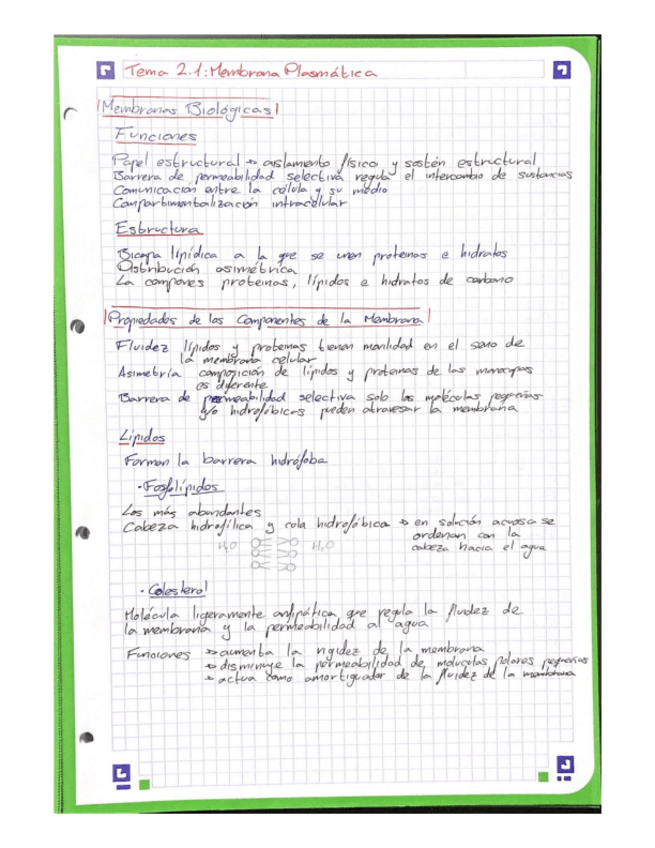 Tema 2.1: Membrana Plasmática
Membranas Biológicas
Funciones
Papel estructural → aislamento físico y sostén estructural
Barrera de permeabilidad selectiva regula el intercambio de sustancias
Comunicación entre la célula y su medio
Compartimentalización intracelular
Estructura
Bicapa lipídica a la que se unen proteinas e hidratos
Distribución asimétrica
La compones proteinas, lípidos e hidratos de carbono
Propiedades de los Componentes de la Membrana
Fluidez lípidos y proteinas tienen movilidad en el seno de
la membrana celular
Asimetría composición de lípidos y proteinas de las monocapas
es diferente
Barrera de permeabilidad selectiva solo las moléculas pequeñas
y/o hidrofóbicas pueden atravesar la membrana
Lípidos
Forman la barrera hidrófoba
· Fosfolípidos
Los más abundantes
Cabeza hidrofílica y cola hidrofóbica → en solución acuosa se
ordenan con la
cabeza hacia el agua
H₂O H₂O
· Colesterol
Molécula ligeramente anfipática que regula la fluidez de
la membrana y la permeabilidad al agua
Funciones → aumenta la rigidez de la membrana
→ disminuye la permeabilidad de moluculas polares pequeñas
→ actua como amortiguador de la fluidez de la membrana